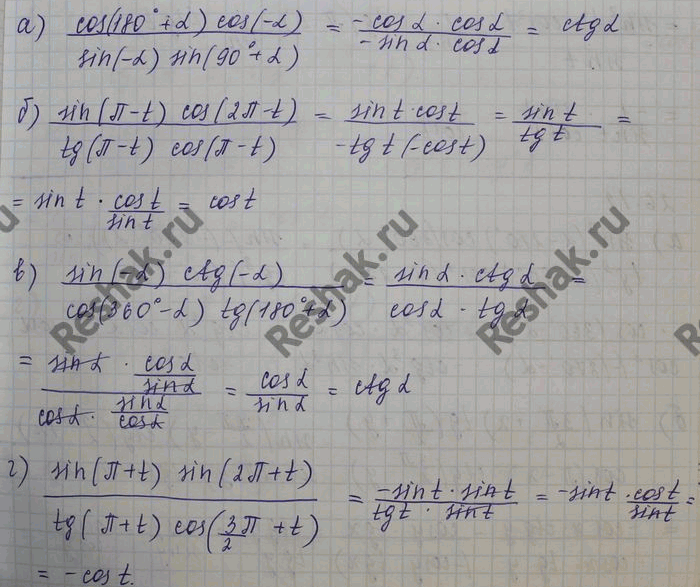 а) cos(180°+α) cos(-α) / sin(-α) sin(90°+α) = -cosα · cosα / -sinα · cosα = ctgα
б) sin(π-t) cos(2π-t) / tg(π-t) cos(π-t) = sint · cost / -tgt(-cost) = sint / tgt =
= sint · cost / sint = cost
в) sin(-α) ctg(-α) / cos(360°-α) tg(180°+α) = sinα · ctgα / cosα · tgα =
= sinα · cosα/sinα / cosα · sinα/cosα = cosα / sinα = ctgα
г) sin(π+t) sin(2π+t) / tg(π+t) cos(3/2π+t) = -sint · sint / tgt · sint = -sint · cost / sint =
= -cost.
Reshak.ru
Reshak.ru
Reshak.ru